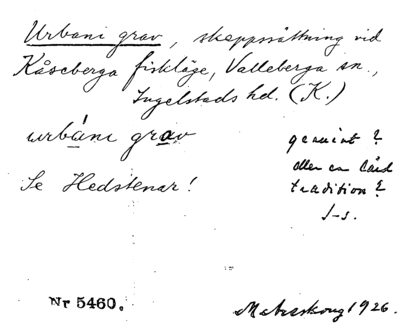 Urbani grav, skeppssättning vid
Kåseberga fiskläge, Valleberga sn.,
Ingelstads hd. (K.)
urbáni grav
genuint?
eller en lärd
Se Hedstenar!
tradition?
J-s.
Nr 5460.
1926.